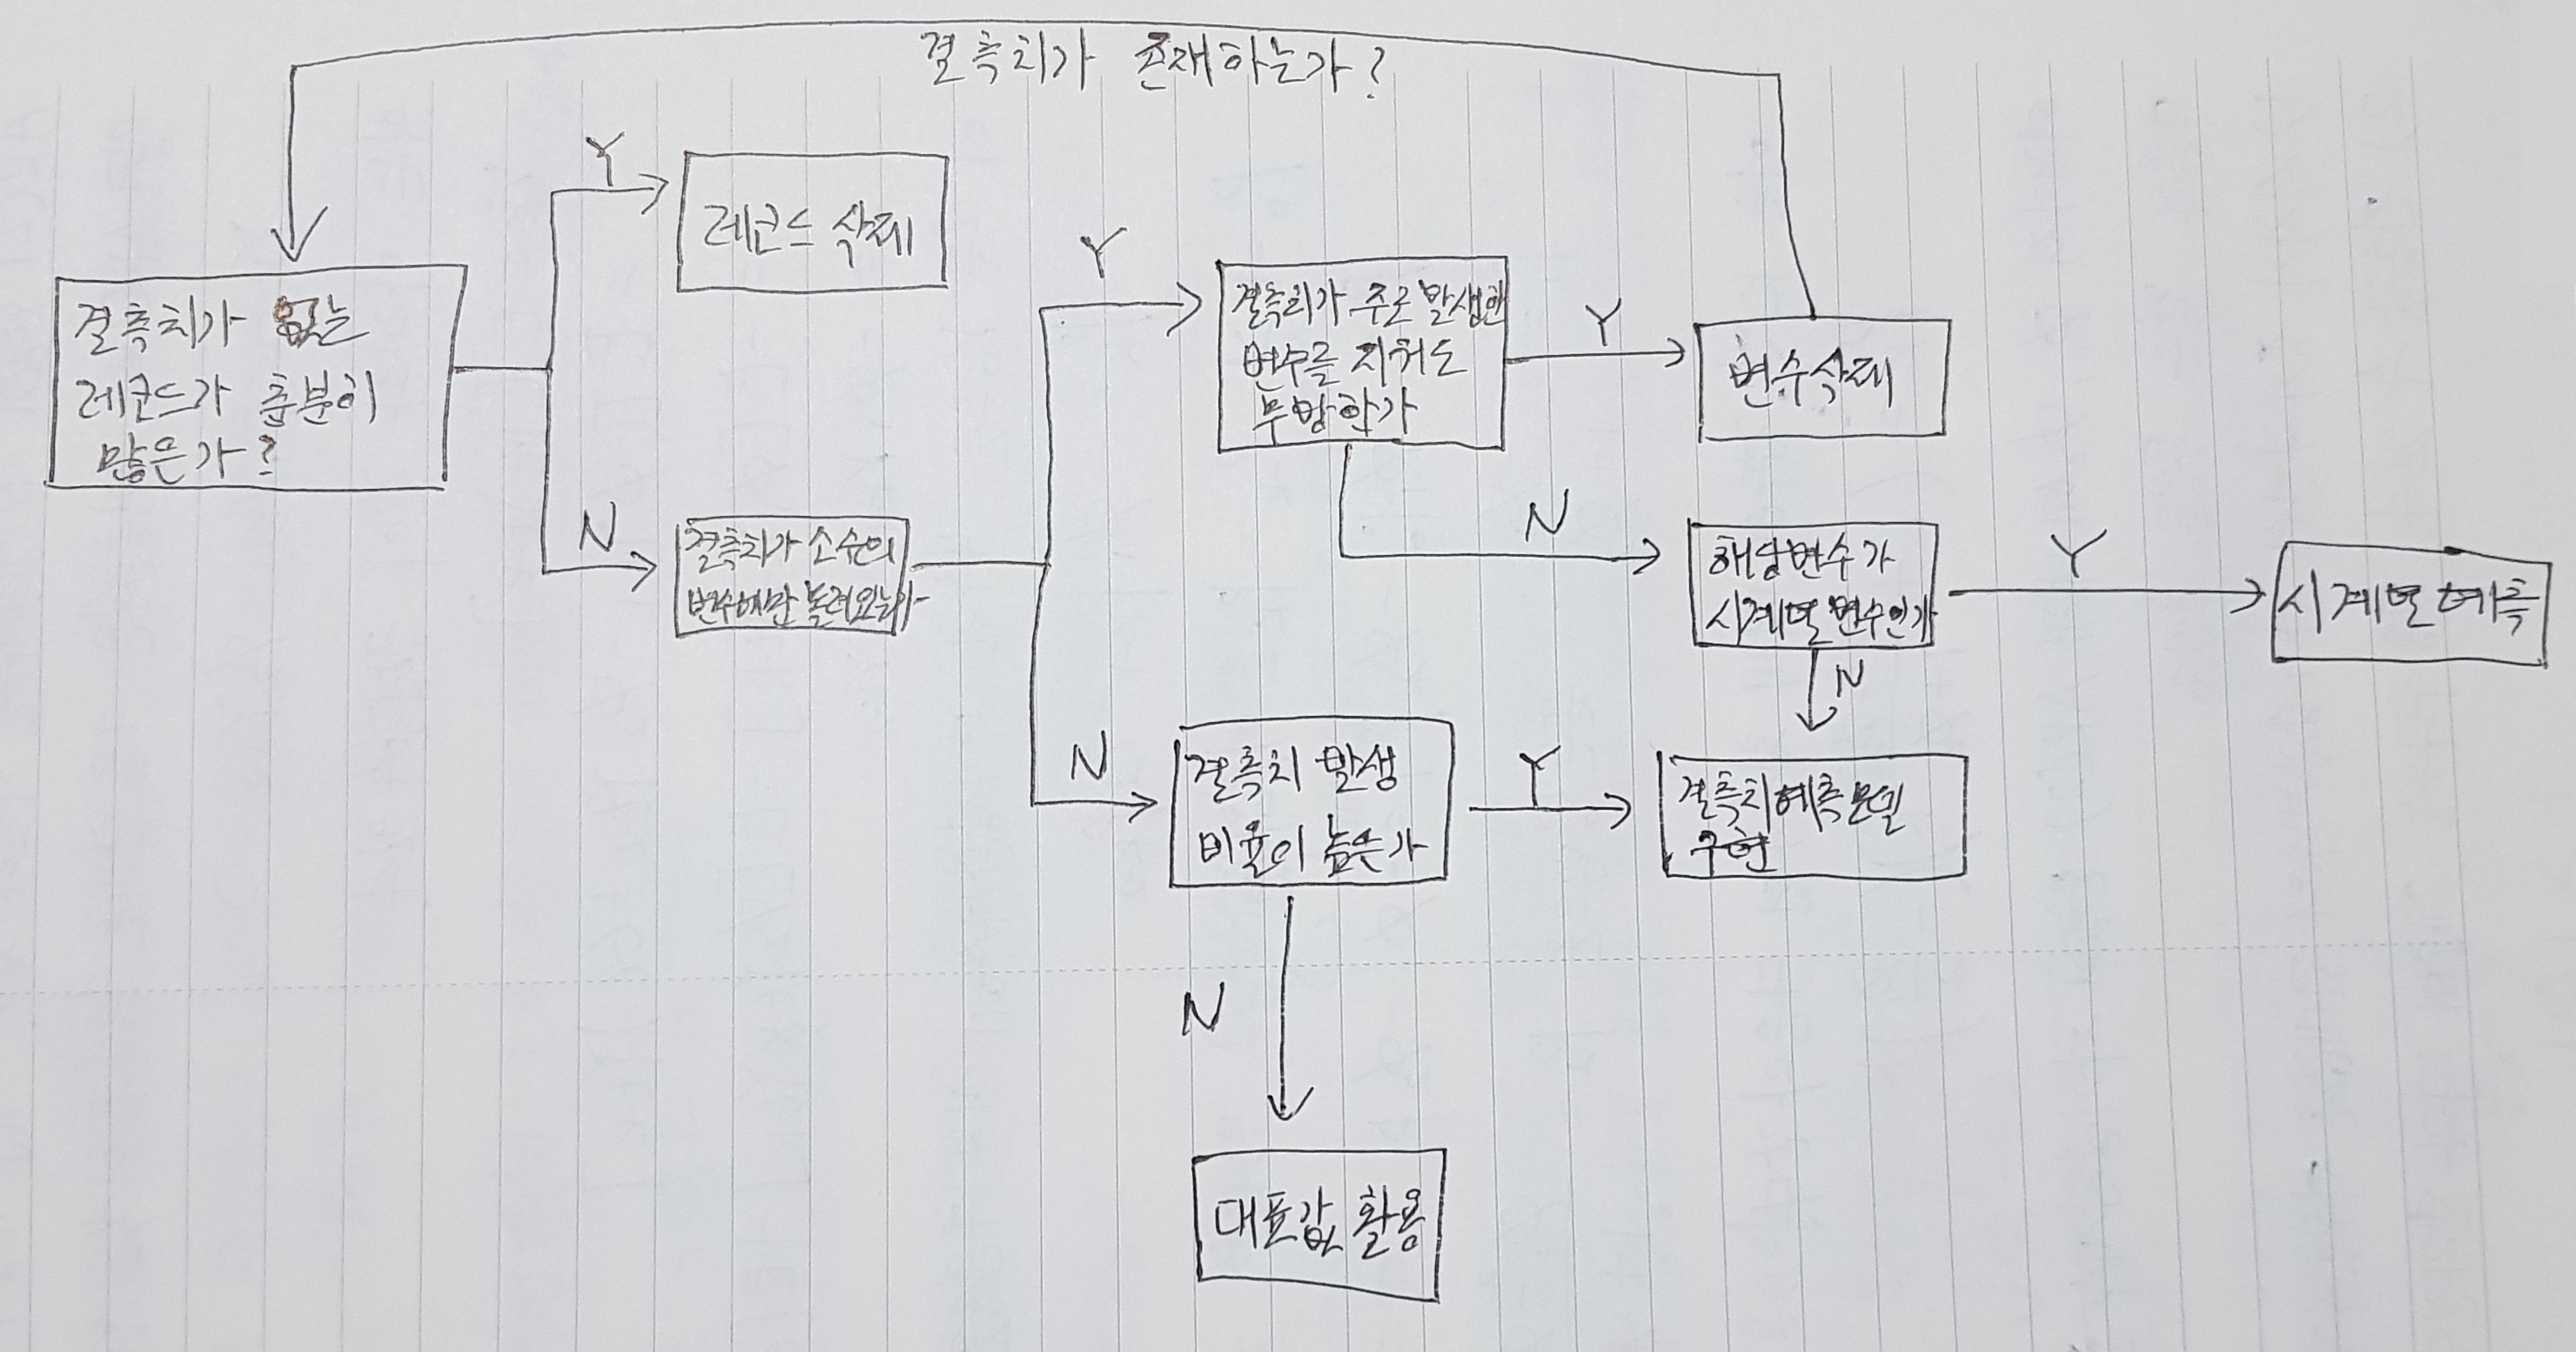 결측치가 존재하는가?
Y
레코드 삭제
결측치가 없는
레코드가 충분히
많은가?
N
결측치가 소수의
변수에만 몰려있는가
Y
결측치가 주로 발생한
변수를 지워도
무방한가
Y
변수삭제
N
해당변수가
시계열 변수인가
Y
시계열 예측
N
N
결측치 발생
비율이 높은가
Y
결측치예측모델
구현
N
대표값 활용